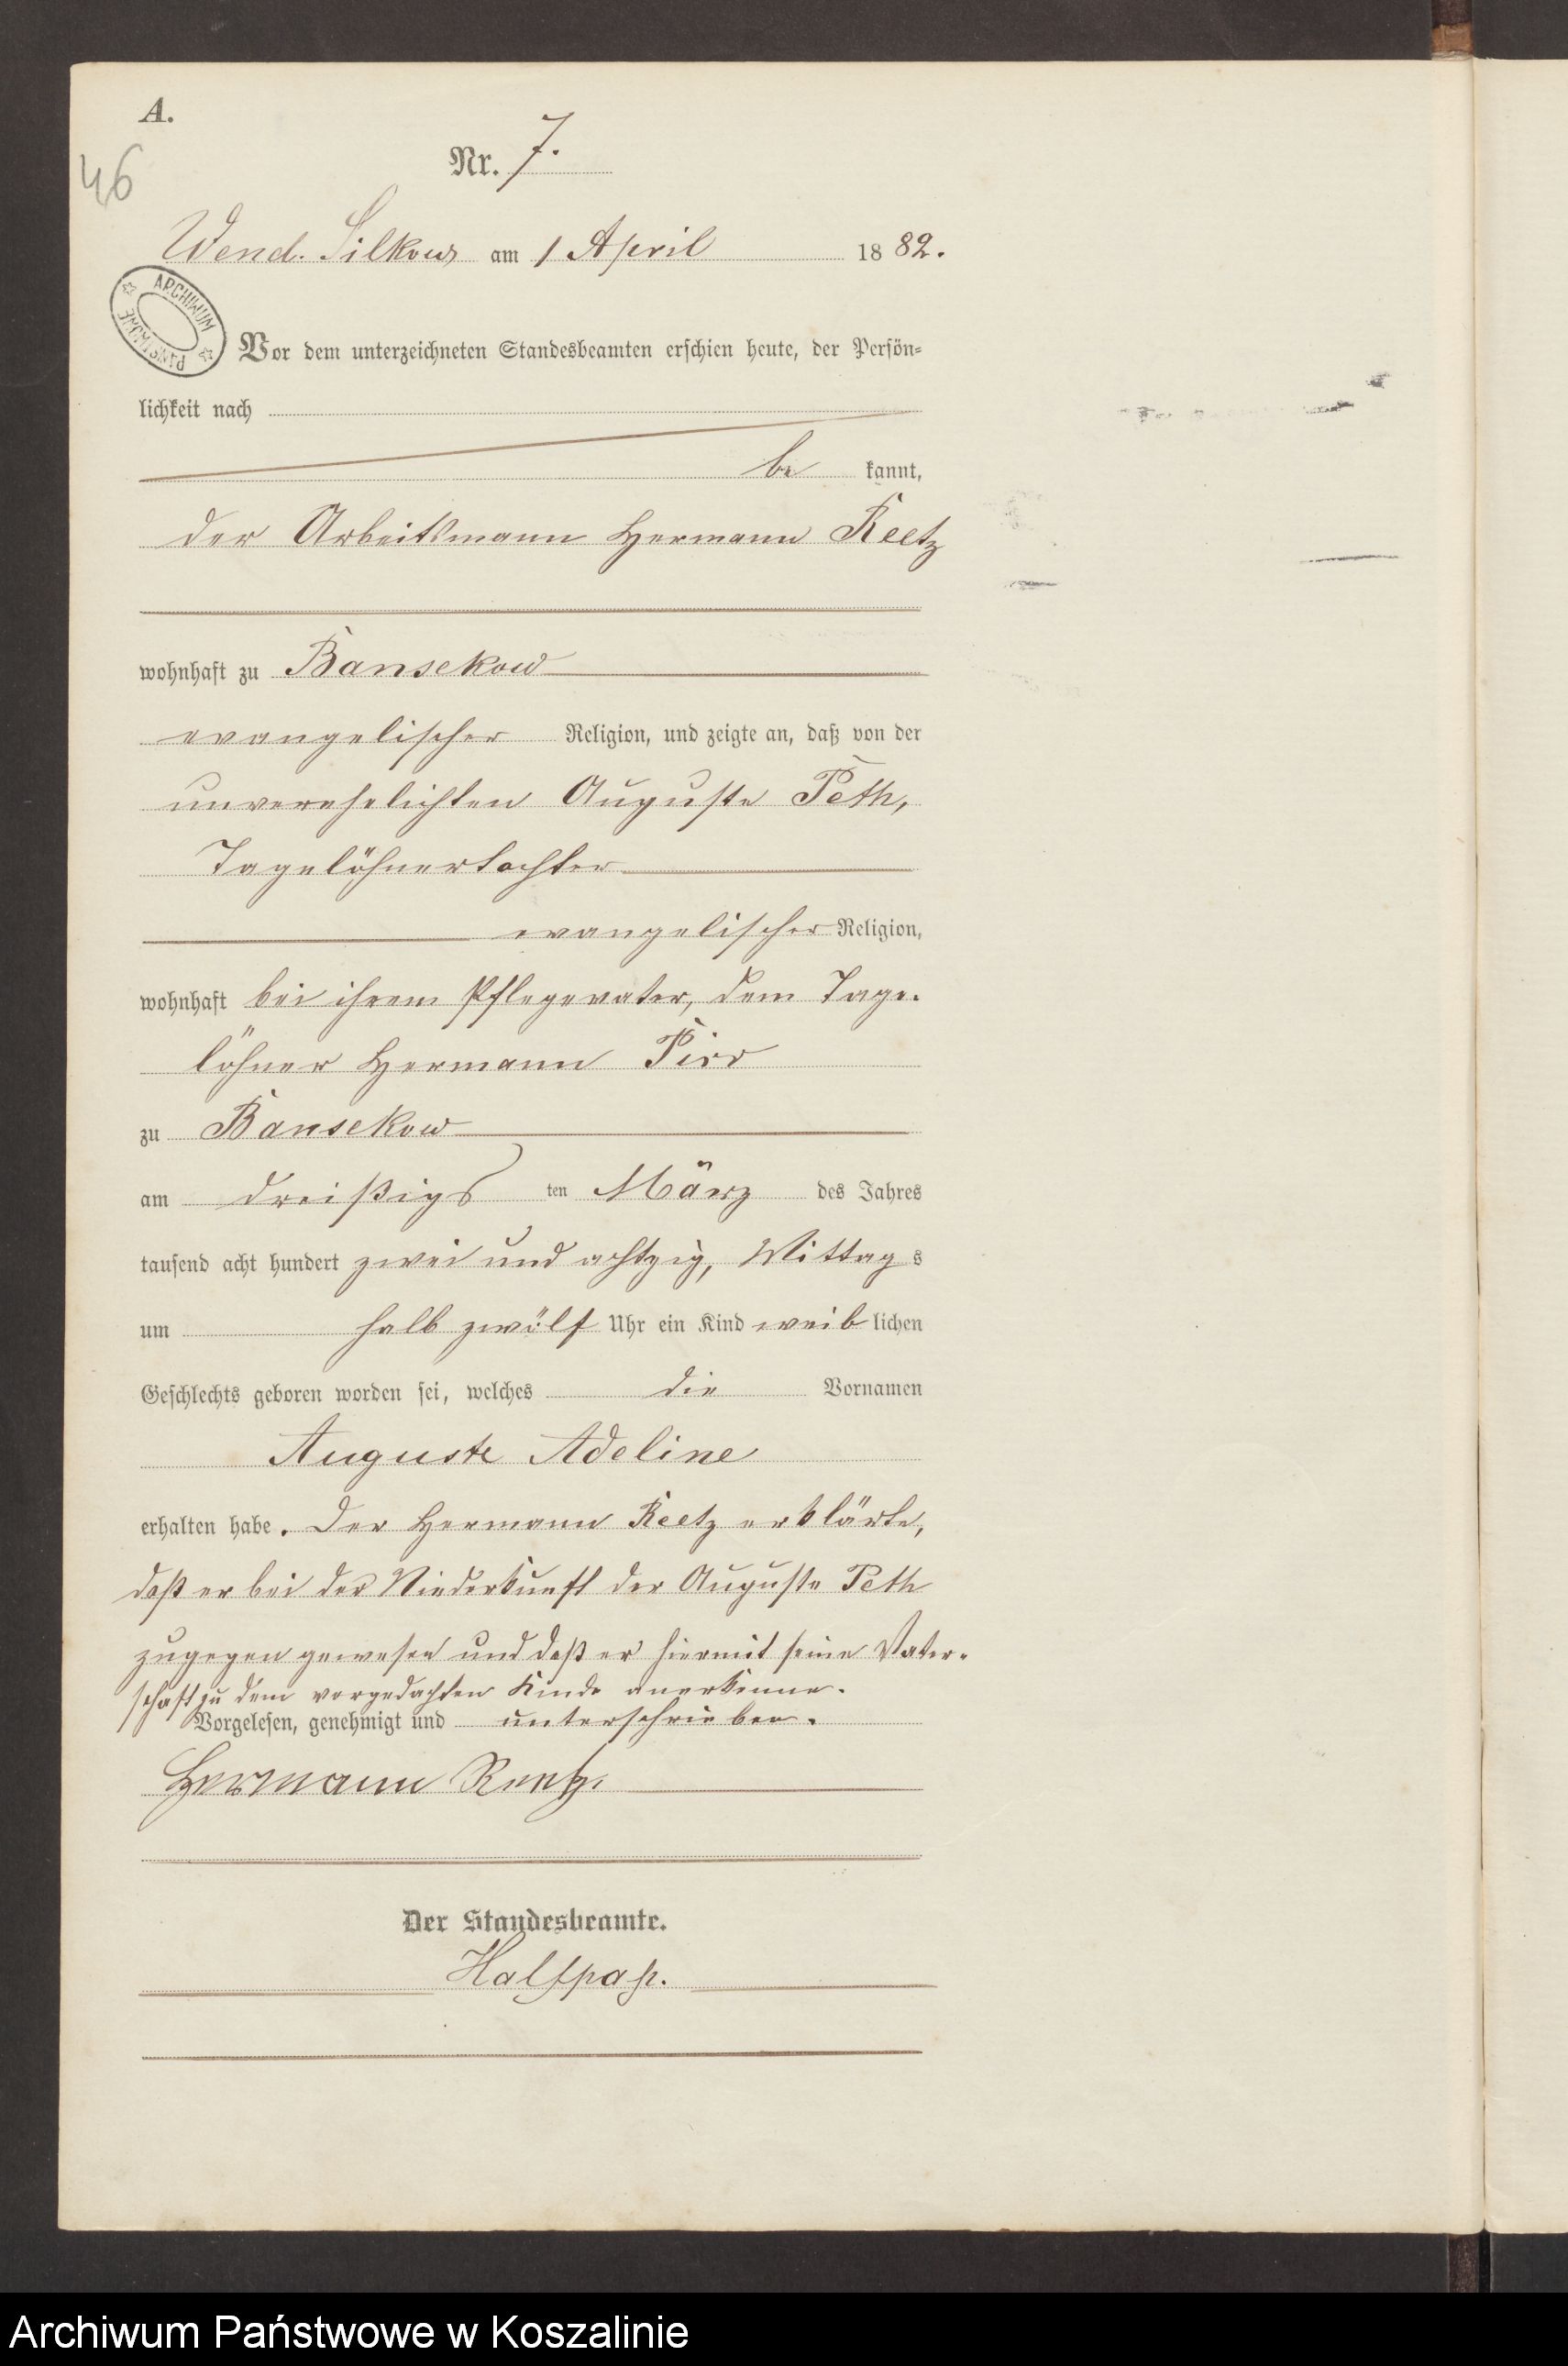 A.
46
Nr. 7.
Wend. Silkow am 1 April 1882.
ARCHIWUM PAŃSTWOWE
Vor dem unterzeichneten Standesbeamten erschien heute, der Persön-
lichkeit nach
be kannt,
der Arbeitsmann Hermann Reetz
wohnhaft zu Bansekow
evangelischer Religion, und zeigte an, daß von der
unverehelichten Auguste Peth,
Tagelöhnertochter
evangelischer Religion,
wohnhaft bei ihrem Pflegevater, dem Tage-
löhner Hermann Pirr
zu Bansekow
am dreißigs ten März des Jahres
tausend acht hundert zwei und achtzig, Mittags
um halb zwölf Uhr ein Kind weiblichen
Geschlechts geboren worden sei, welches die Vornamen
Auguste Adeline
erhalten habe. Der Hermann Reetz erklärte,
daß er bei der Niederkunft der Auguste Peth
zugegen gewesen und daß er hiermit seine Vater-
schaft zu dem vorgedachten Kinde anerkenne.
Vorgelesen, genehmigt und unterschrieben.
Hermann Reetz.
Der Standesbeamte.
Halfpap.
Archiwum Państwowe w Koszalinie